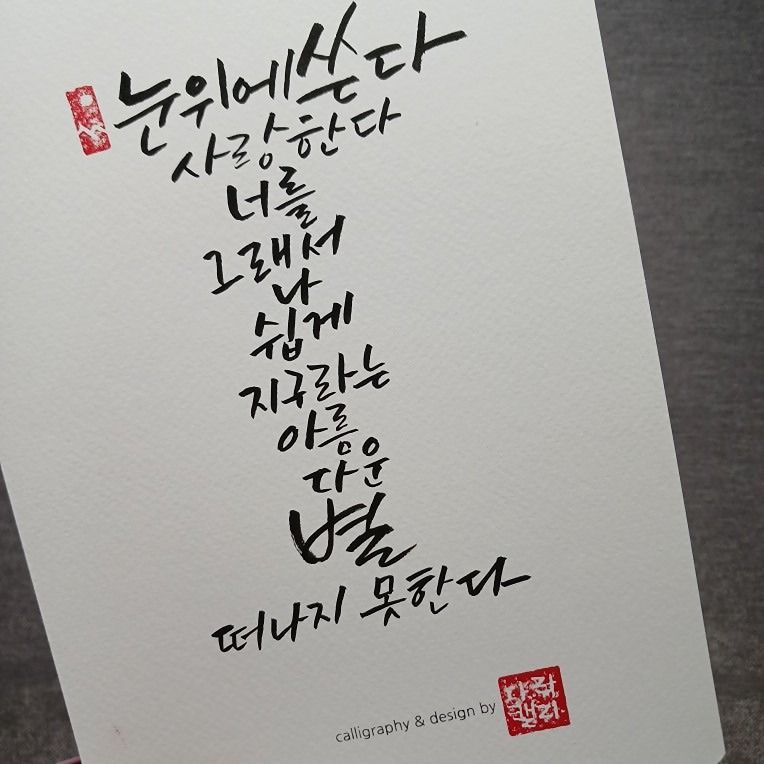 눈위에쓴다
사랑한다
너를
그래서
나
쉽게
지구라는
아름
다운
별
떠나지 못한다
calligraphy & design by